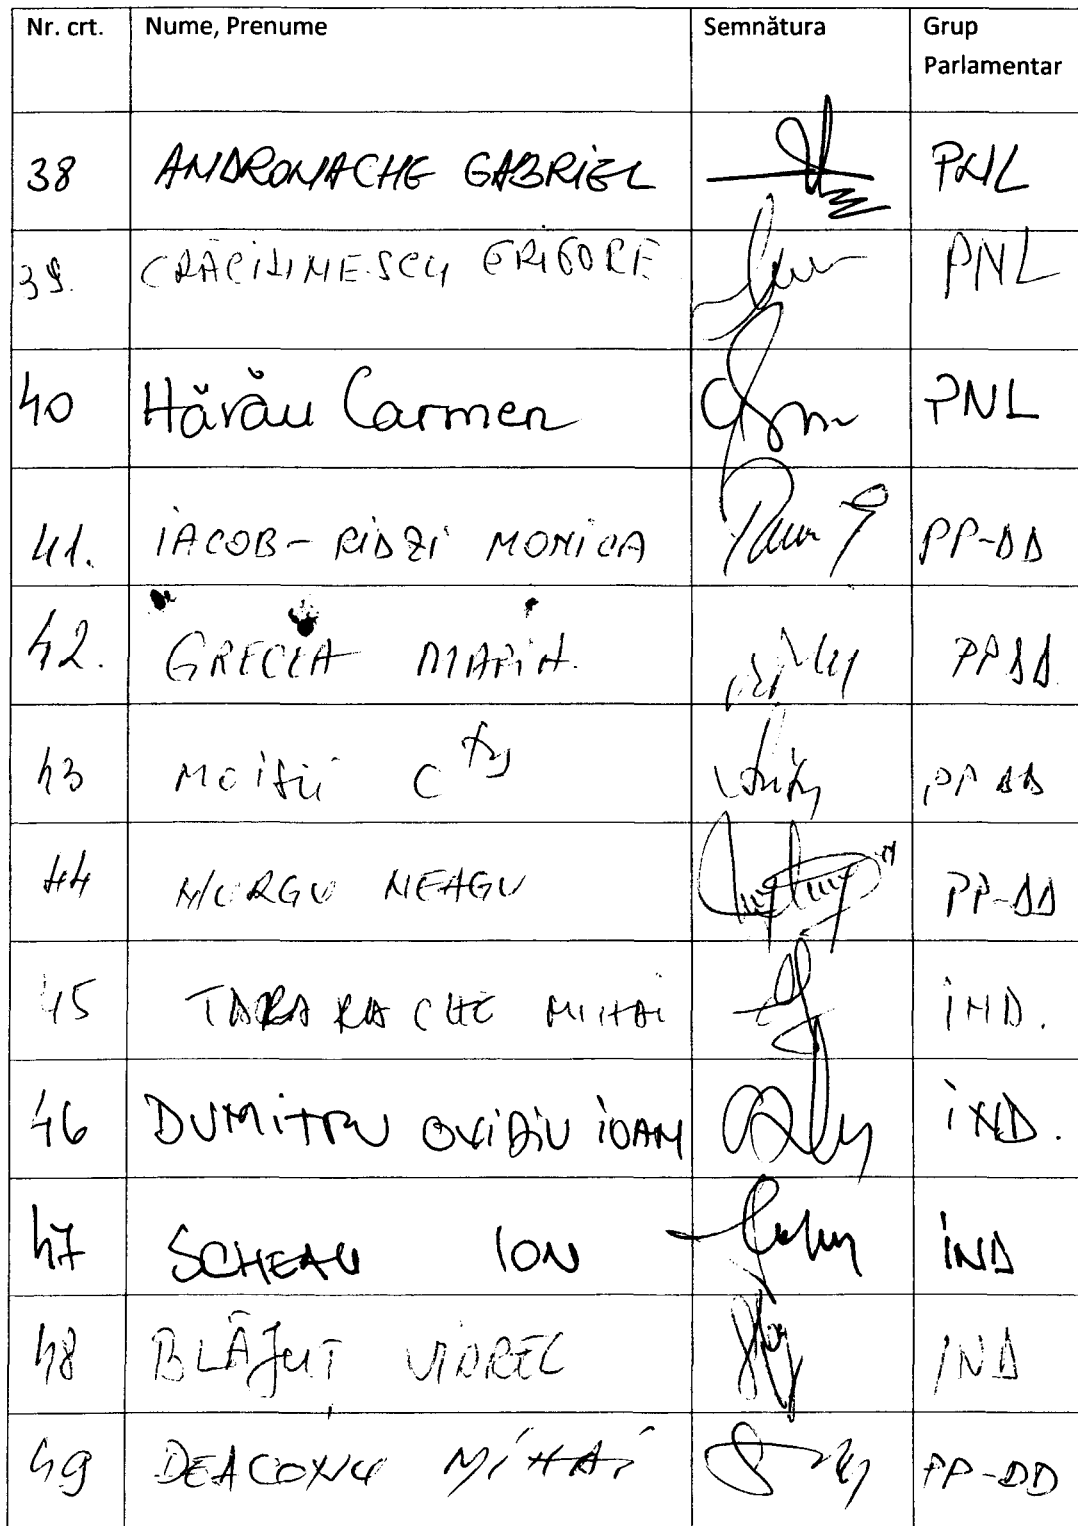 Nr. crt. Nume, Prenume Semnătura Grup
Parlamentar
38 ANDRONACHE GABRIEL PNL
39. CRĂCIUNESCU GRIGORE PNL
40 Hărău Carmen PNL
41. IACOB-RIDZI MONICA PP-DD
42. GRECEA MARIA PPDD
43 MOISII C PP DD
44 MURGU NEAGU PP-DD
45 TARARACHE MIHAI IND.
46 DUMITRU OVIDIU IOAN IND.
47 SCHEAU ION IND
48 BLĂJUȚ VIOREL IND
49 DEACONU MIHAI PP-DD